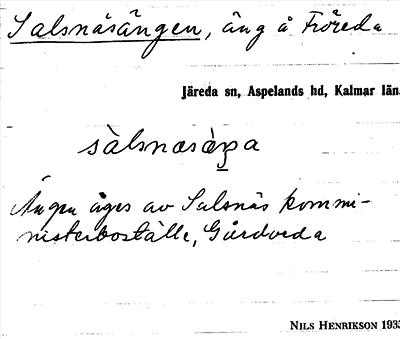 Salsnäsängen, äng å Fröreda
Järeda sn, Aspelands hd, Kalmar län.
sàlsnæsæ̀ŋa
Ängen äges av Salsnäs kommi-
nisterboställe, Gårdveda
NILS HENRIKSON 193